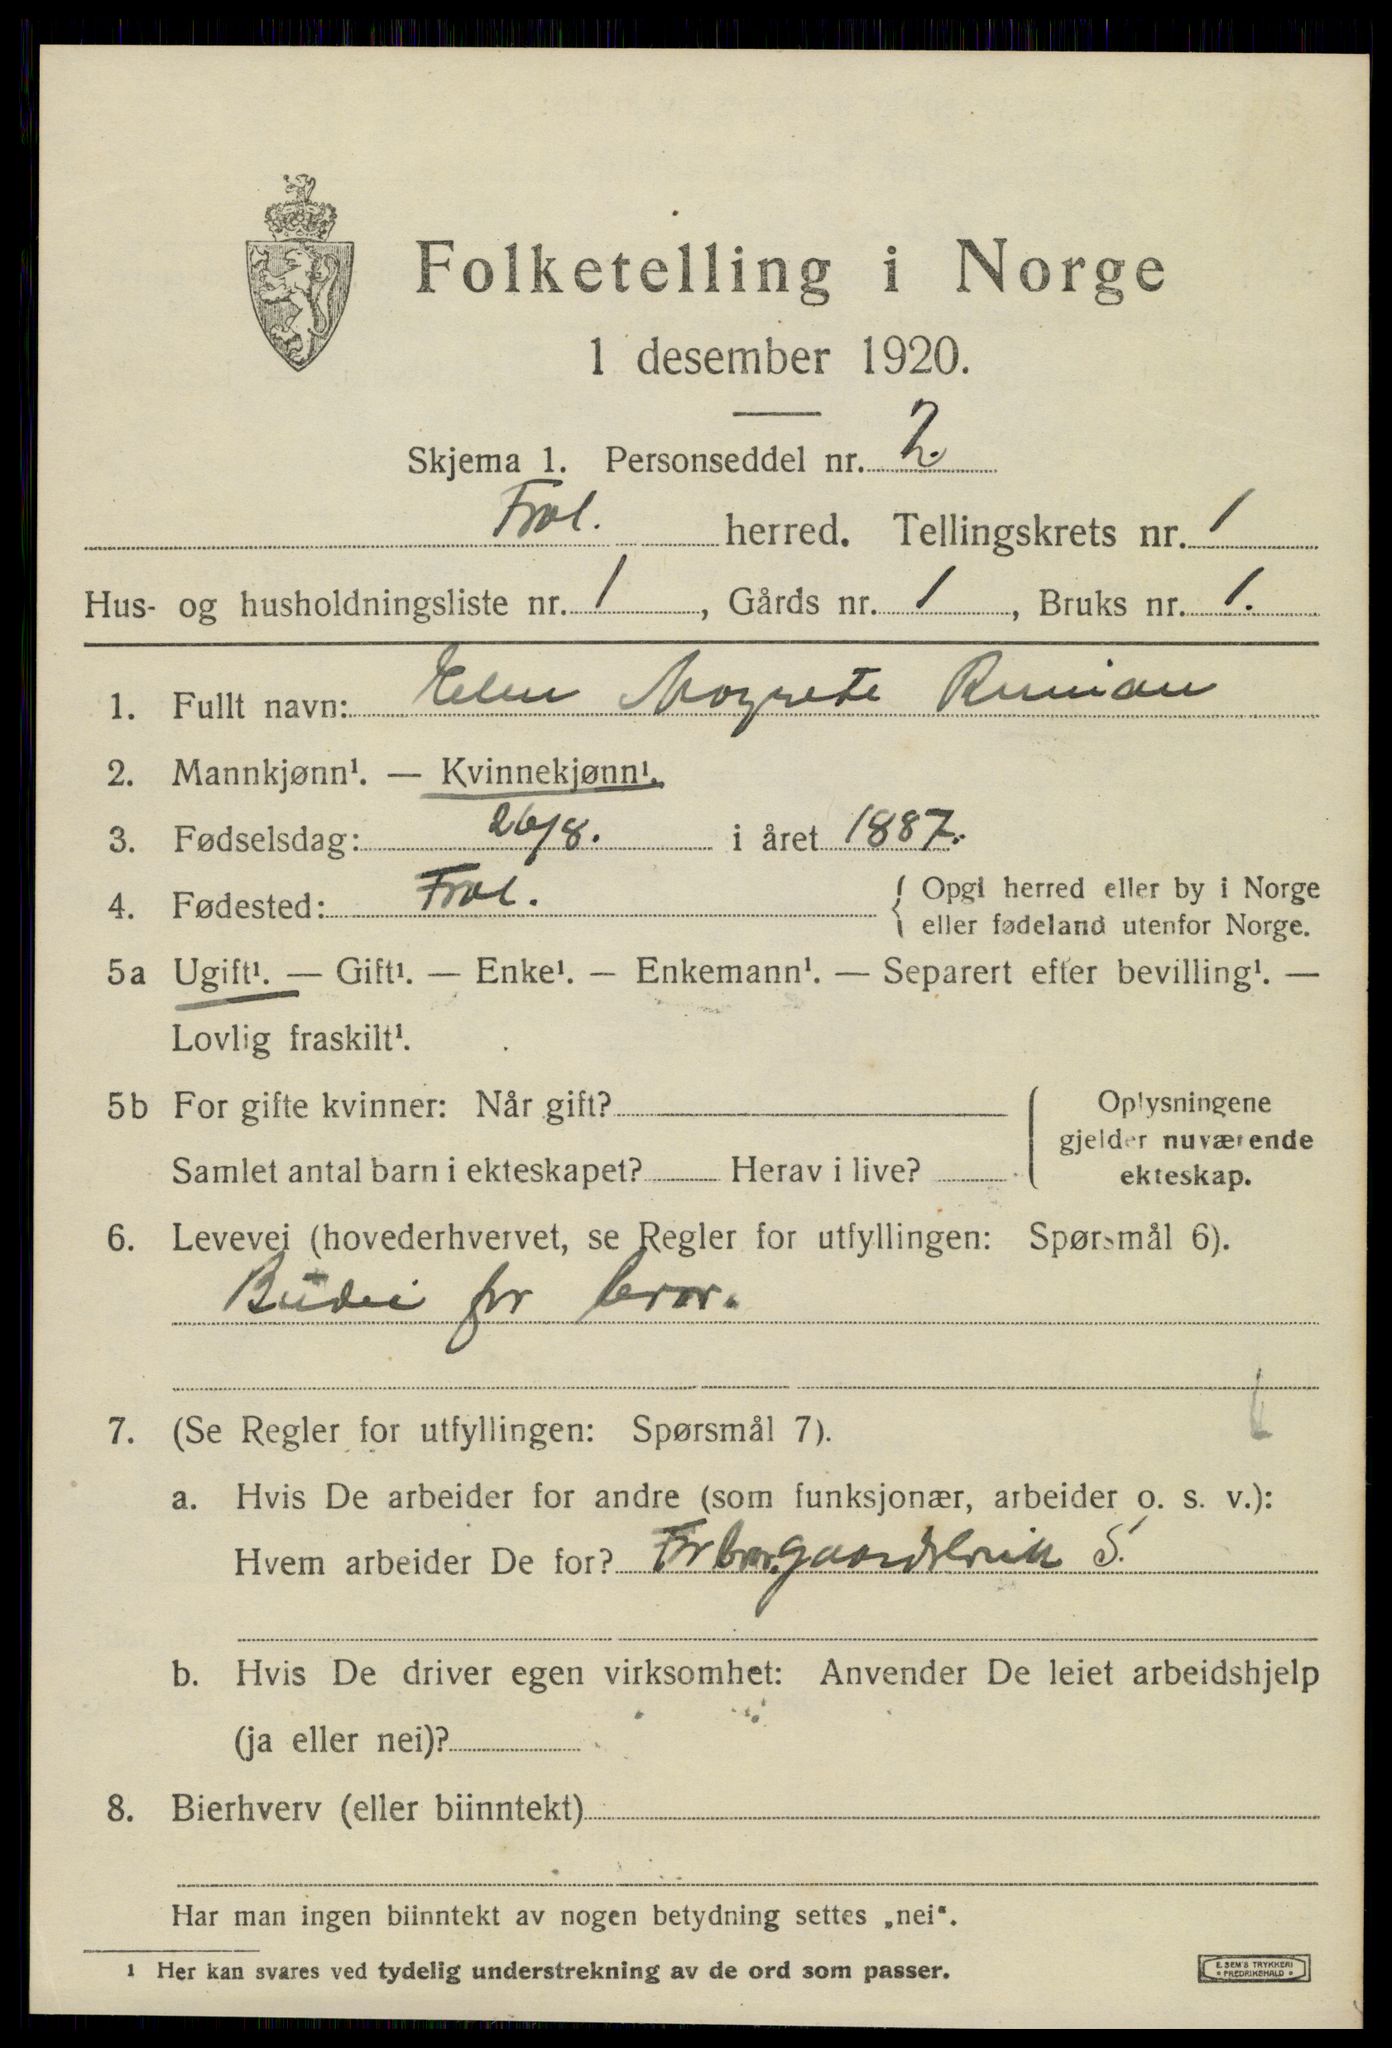 Folketelling i Norge
1 desember 1920.
Skjema 1. Personseddel nr. 2.
Frol. herred. Tellingskrets nr. 1
Hus- og husholdningsliste nr. 1, Gårds nr. 1, Bruks nr. 1.
1. Fullt navn: Elen Magrete
2. Mannkjønn¹. — Kvinnekjønn¹.
3. Fødselsdag: 26/8. i året 1887.
4. Fødested: Frol. { Opgi herred eller by i Norge
eller fødeland utenfor Norge.
5a Ugift¹. — Gift¹. — Enke¹. — Enkemann¹. — Separert efter bevilling¹. —
Lovlig fraskilt¹.
5b For gifte kvinner: Når gift?
Samlet antal barn i ekteskapet? Herav i live?
Oplysningene
gjelder nuværende
ekteskap.
6. Levevei (hovederhvervet, se Regler for utfyllingen: Spørsmål 6).
Budei for bror.
7. (Se Regler for utfyllingen: Spørsmål 7).
a. Hvis De arbeider for andre (som funksjonær, arbeider o. s. v.):
Hvem arbeider De for? For bror. gaardbruk S.
b. Hvis De driver egen virksomhet: Anvender De leiet arbeidshjelp
(ja eller nei)?
8. Bierhverv (eller biinntekt)
Har man ingen biinntekt av nogen betydning settes „nei“.
1 Her kan svares ved tydelig understrekning av de ord som passer.
E. SEM'S TRYKKERI
• FREDRIKSHALD •